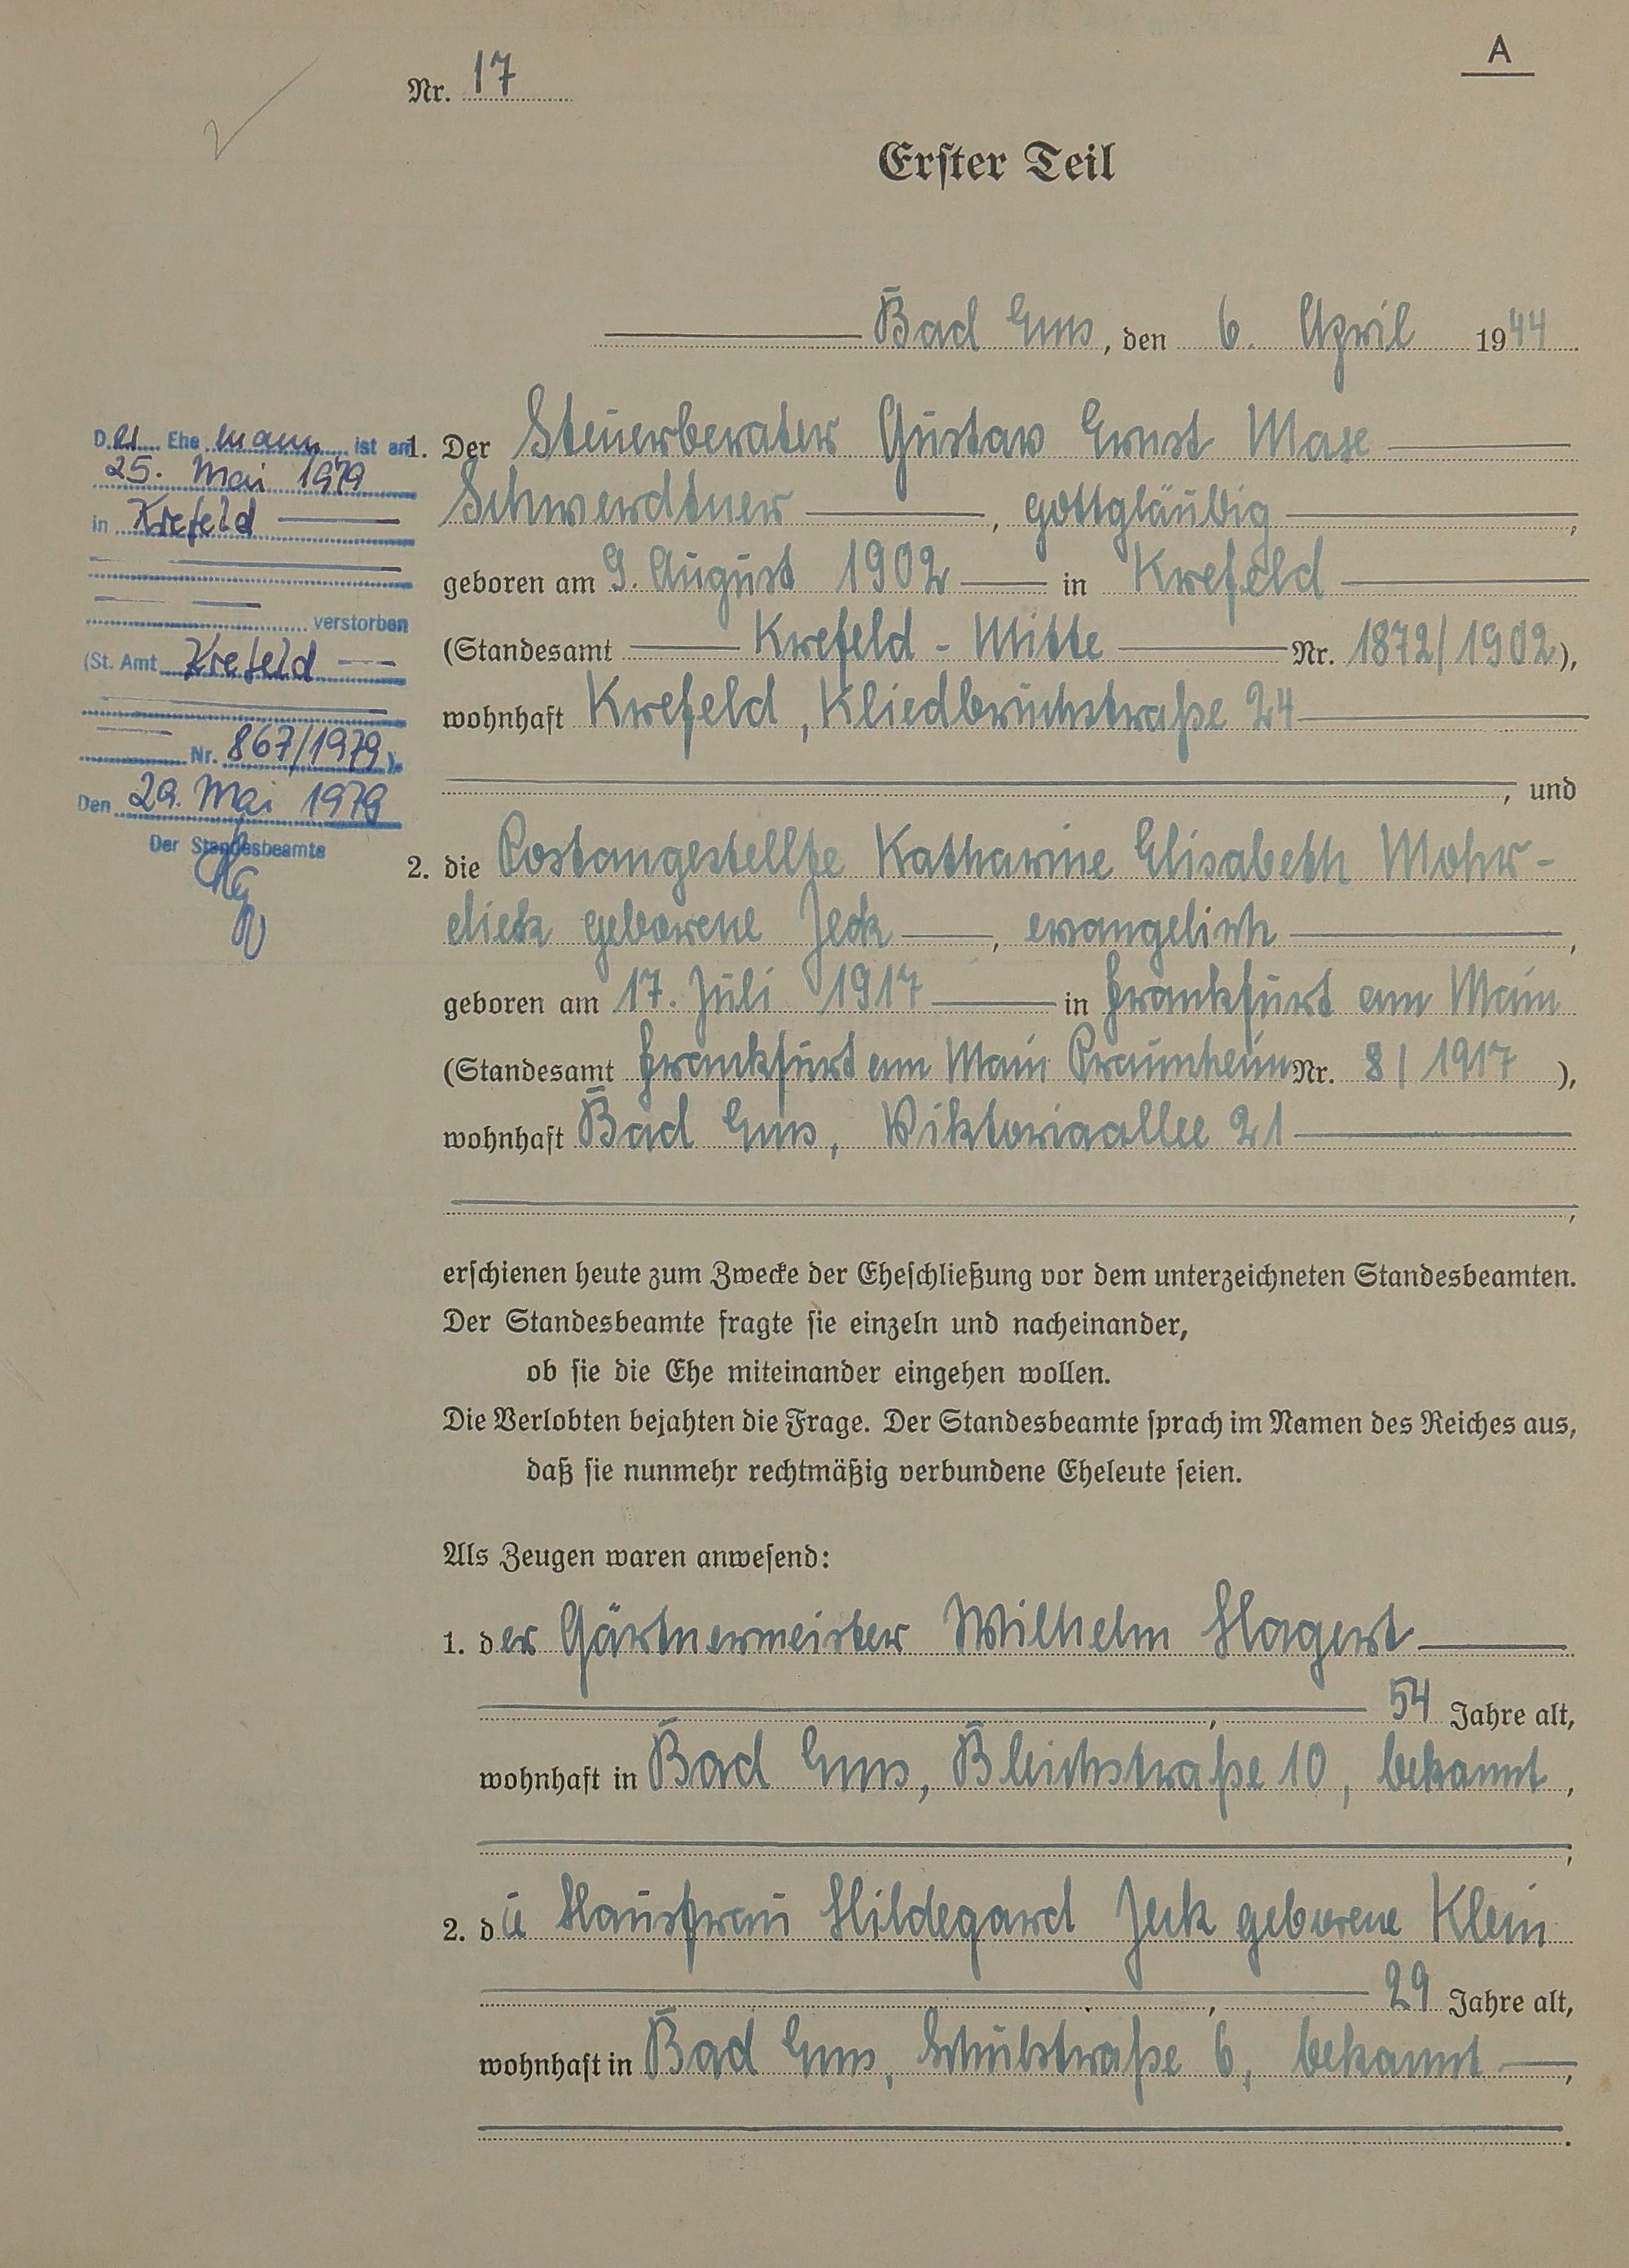 A
Nr. 17
Erster Teil
Bad Ems, den 6. April 1944
1. Der Steuerberater Gustav Ernst Max
Schwerdtner, gottgläubig,
geboren am 9. August 1902 in Krefeld
(Standesamt Krefeld - Mitte Nr. 1872/1902),
wohnhaft Krefeld, Kliedbruchstraße 24
, und
2. die Postangestellte Katharine Elisabeth Mohr-
dieck geborene Jeck, evangelisch,
geboren am 17. Juli 1917 in Frankfurt am Main
(Standesamt Frankfurt am Main Praunheim Nr. 8/1917),
wohnhaft Bad Ems, Viktoriaallee 21
,
erschienen heute zum Zwecke der Eheschließung vor dem unterzeichneten Standesbeamten.
Der Standesbeamte fragte sie einzeln und nacheinander,
ob sie die Ehe miteinander eingehen wollen.
Die Verlobten bejahten die Frage. Der Standesbeamte sprach im Namen des Reiches aus,
daß sie nunmehr rechtmäßig verbundene Eheleute seien.
Als Zeugen waren anwesend:
1. der Gärtnermeister Wilhelm Hagert
, 54 Jahre alt,
wohnhaft in Bad Ems, Bleichstraße 10, bekannt,
;
2. die Hausfrau Hildegard Jeck geborene Klein
, 29 Jahre alt,
wohnhaft in Bad Ems, Schulstraße 6, bekannt,
.
Der Ehemann ist am
25. Mai 1979
in Krefeld
verstorben
(St. Amt Krefeld
Nr. 867/1979).
Den 29. Mai 1979
Der Standesbeamte